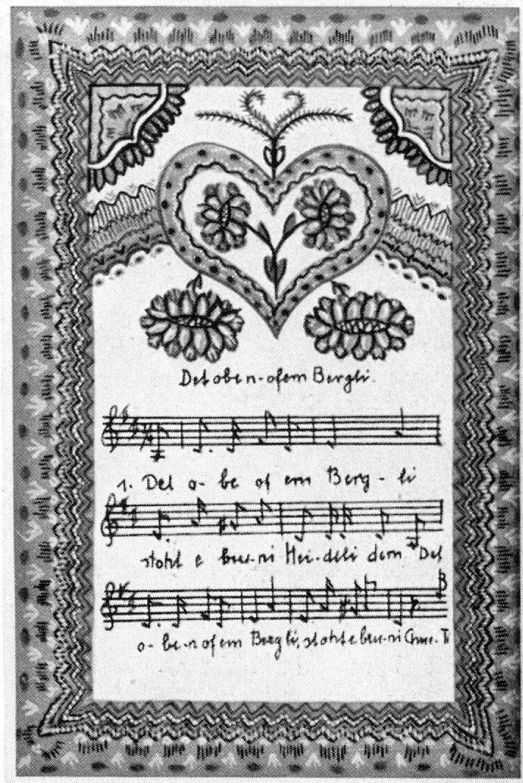 Det obe n-ofem Bergli.
1. Det o - be of em Berg - li
stoht e bru-ni Hei-deli dem Det
o - be-n ofem Bergli, stoht e bru-ni Chue.